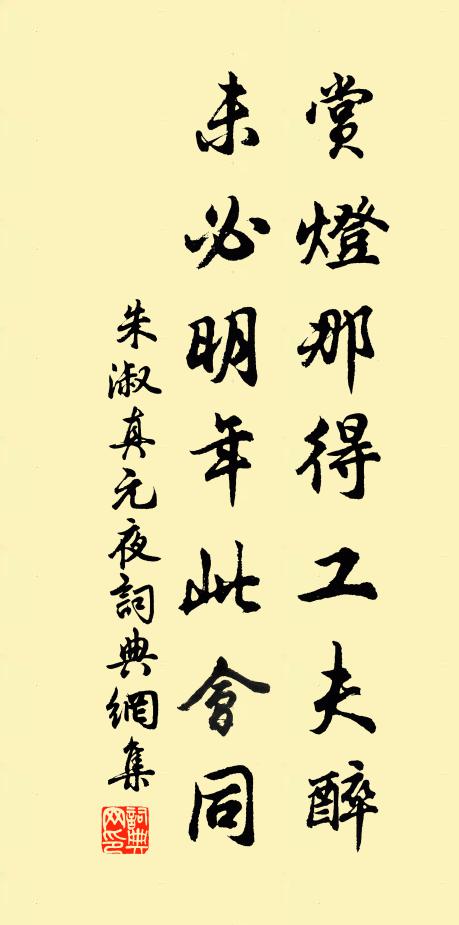 賞燈那得工夫醉
未必明年此會同
朱淑真元夜詞典網集
詞典網印